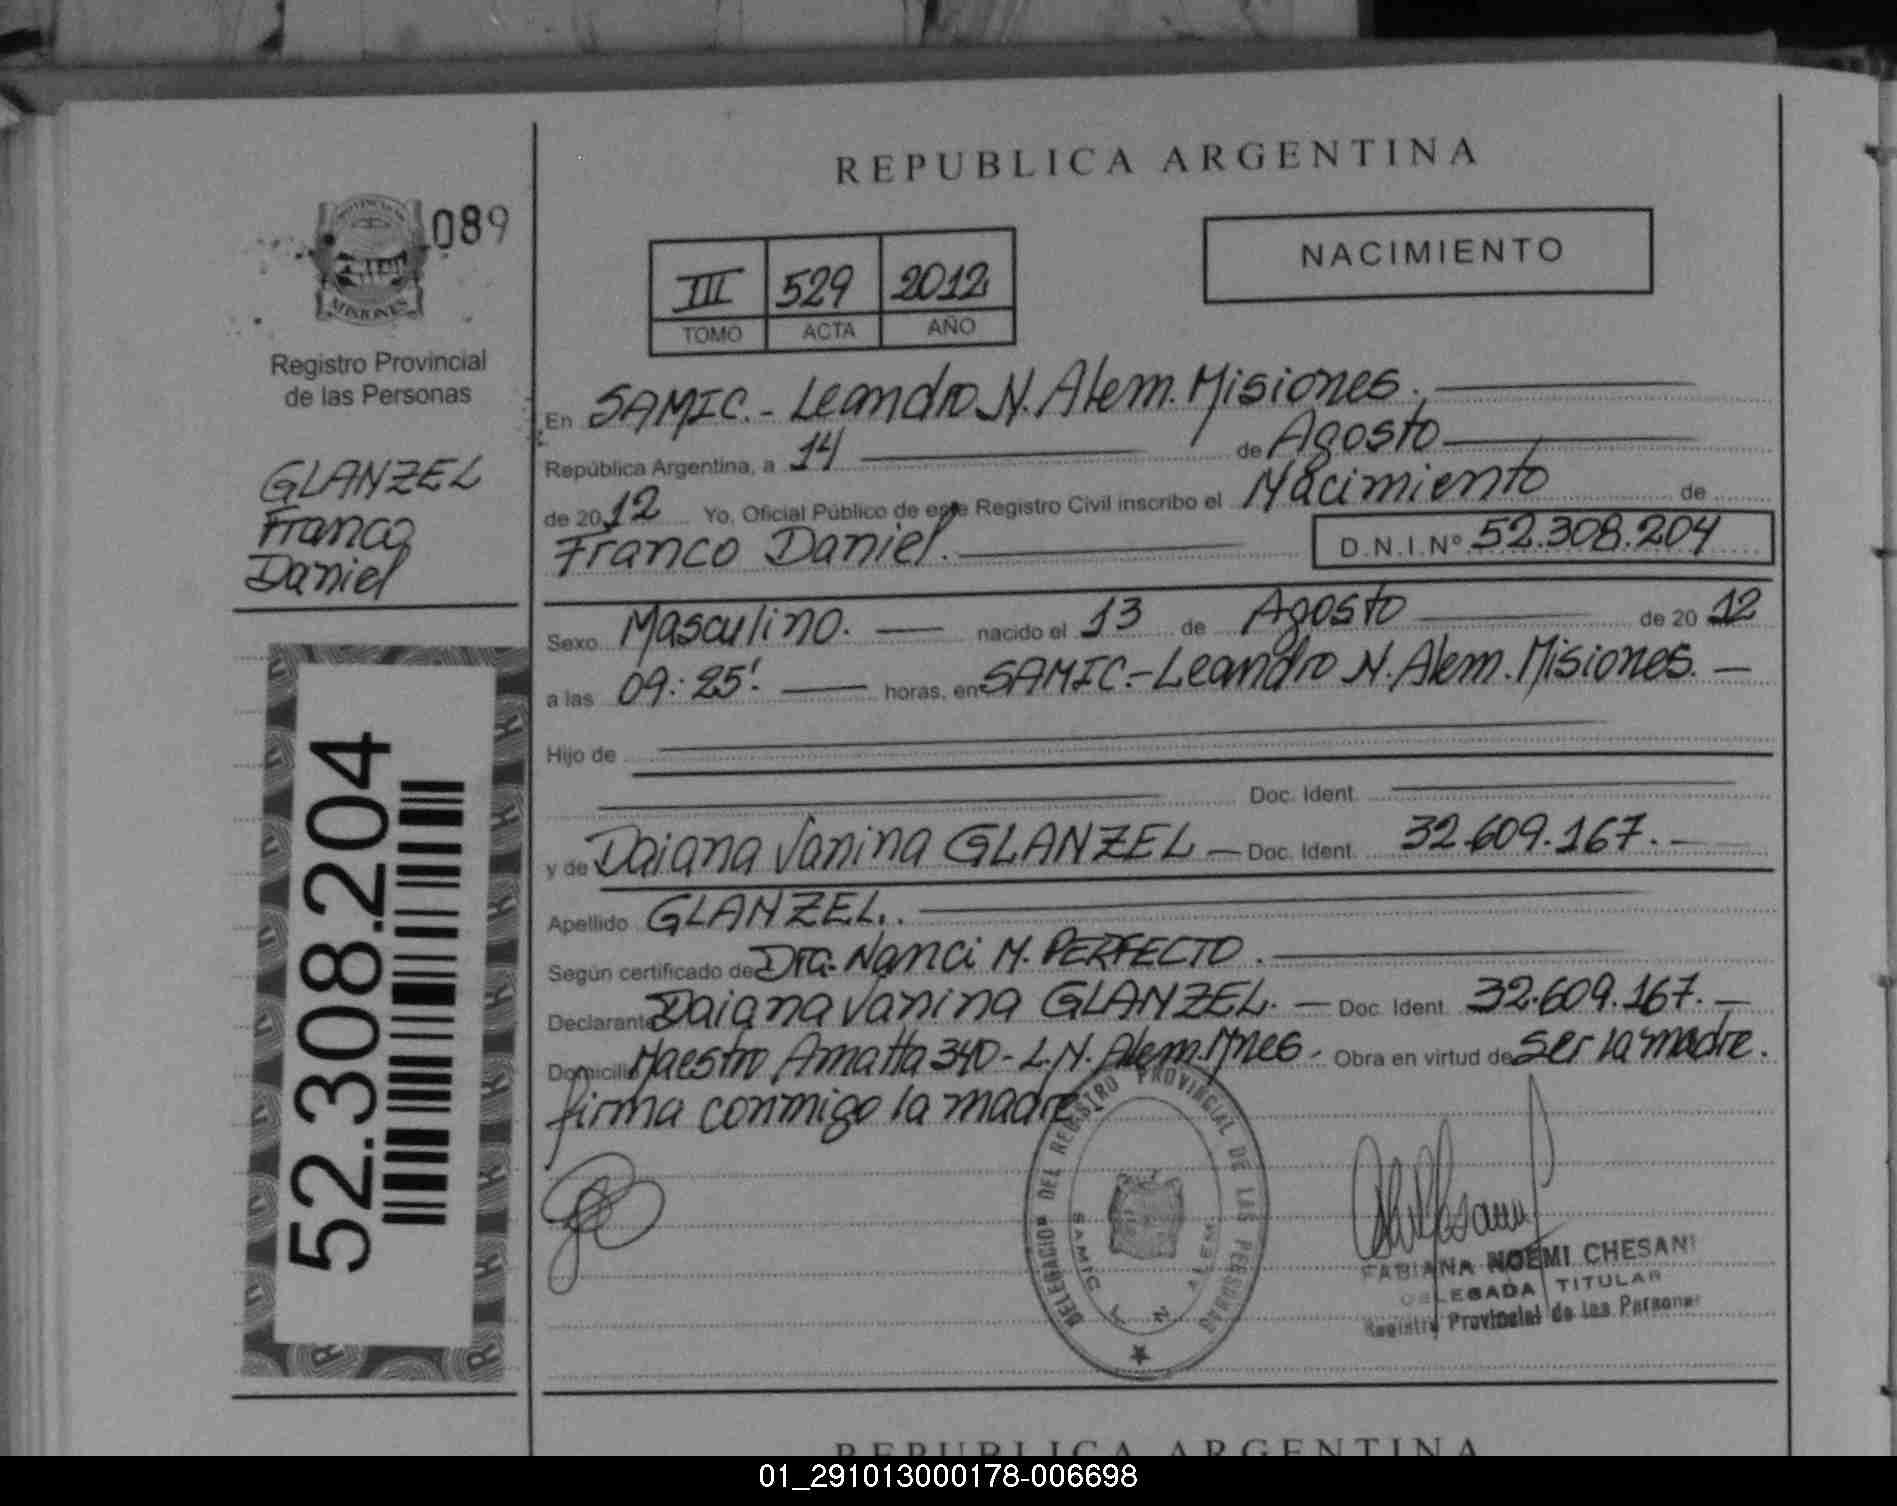 REPUBLICA ARGENTINA
PROVINCIA DE
MISIONES
089
NACIMIENTO
III 529 2012
TOMO ACTA AÑO
Registro Provincial
de las Personas
GLANZEL
Franco
Daniel
En SAMIC.- Leandro N. Alem. Misiones.
República Argentina, a 14 de Agosto
de 2012 Yo, Oficial Público de este Registro Civil inscribo el Nacimiento de
Franco Daniel. D.N.I.Nº 52.308.204
Sexo Masculino. nacido el 13 de Agosto de 20 12
a las 09:25'. horas, en SAMIC.-Leandro N. Alem. Misiones.
Hijo de
Doc. Ident.
y de Daiana Vanina GLANZEL Doc. Ident. 32.609.167.
Apellido GLANZEL.
Según certificado de Dra. Nanci M. PERFECTO.
Declarante Daiana Vanina GLANZEL. Doc. Ident. 32.609.167.
Domicilio Maestro Amatta 340 - L.N. Alem. Mnes. Obra en virtud de ser la madre.
firma conmigo la madre
52.308.204
DELEGACION DEL REGISTRO PROVINCIAL DE LAS PERSONAS
SAMIC L N ALEM
FABIANA NOEMI CHESANI
DELEGADA TITULAR
Registro Provincial de las Personas
REPUBLICA ARGENTINA
01_291013000178-006698